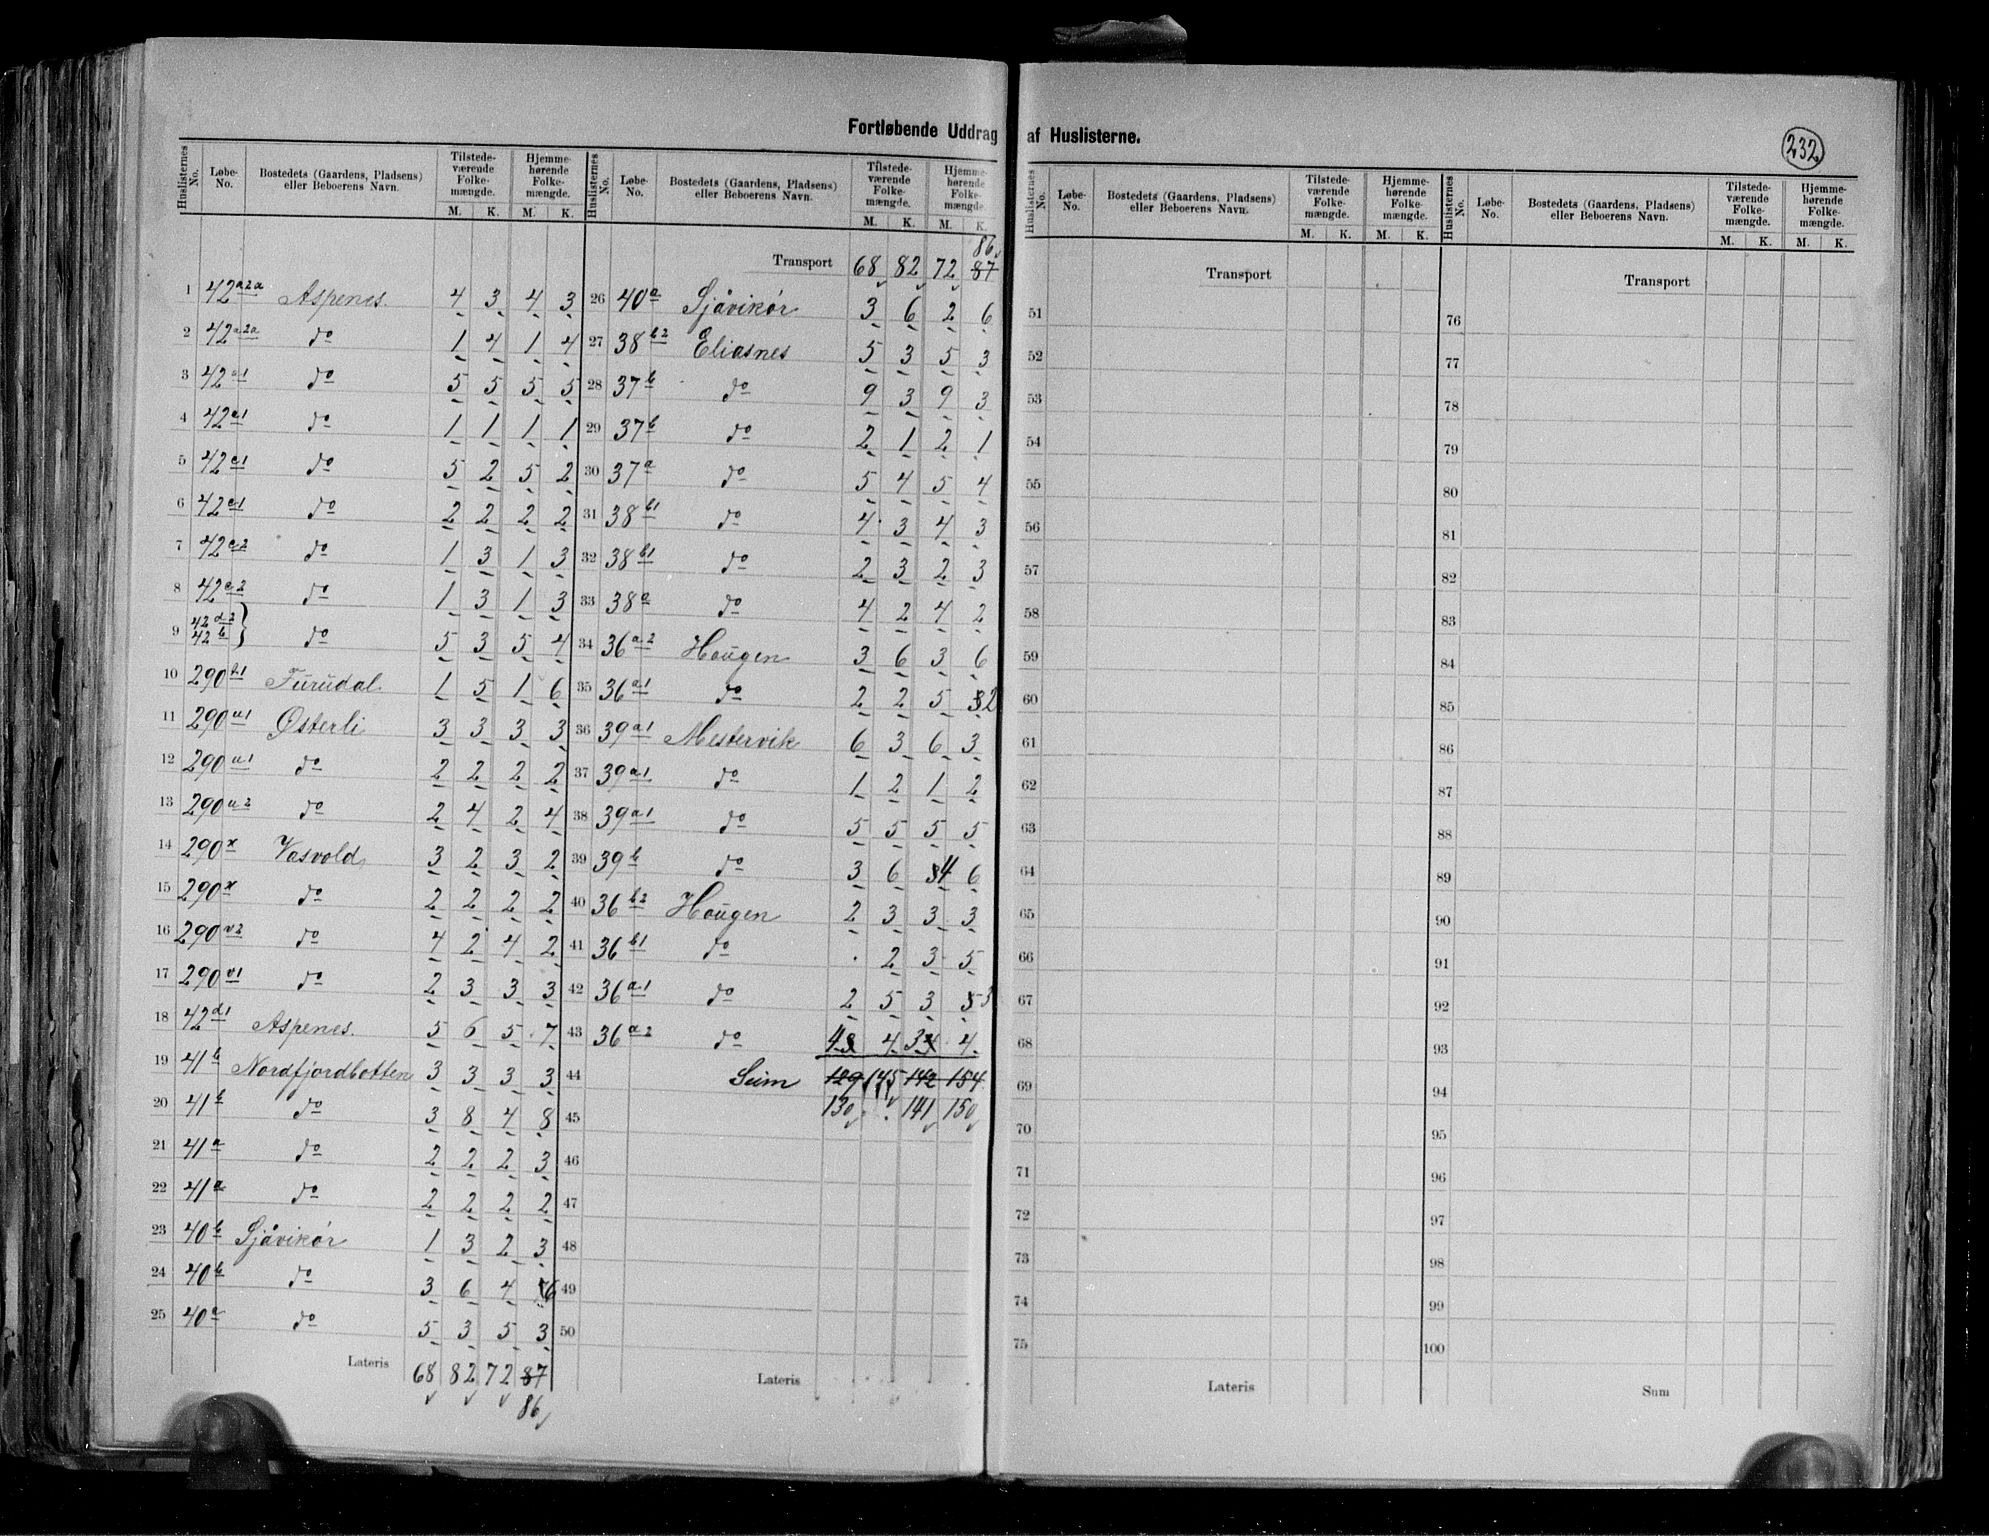 Fortløbende Uddrag af Huslisterne.
232
Huslisternes No. | Løbe-No. | Bostedets (Gaardens, Pladsens) eller Beboerens Navn. | Tilstedeværende Folkemængde. M. K. | Hjemmehørende Folkemængde. M. K.
1 42 a2a Aspenes. 4 3 4 3
2 42 a2a do 1 4 1 4
3 42 a1 do 5 5 5 5
4 42 a1 do 1 1 1 1
5 42 c1 do 5 2 5 2
6 42 c1 do 2 2 2 2
7 42 c2 do 1 3 1 3
8 42 c2 do 1 3 1 3
9 42 d2 42 b } do 5 3 5 4
10 290 Furudal 1 5 1 6
11 290 u1 Østerli 3 3 3 3
12 290 u1 do 2 2 2 2
13 290 u2 do 2 4 2 4
14 290 x Vasvold 3 2 3 2
15 290 x do 2 2 2 2
16 290 v2 do 4 2 4 2
17 290 v1 do 2 3 3 3
18 42 d1 Aspenes. 5 6 5 7
19 41 b Nordfjordbotten 3 3 3 3
20 41 b do 3 8 4 8
21 41 a do 2 2 2 3
22 41 a do 2 2 2 2
23 40 b Sjåvikør 1 3 2 3
24 40 b do 3 6 4 6
25 40 a do 5 3 5 3
Lateris 68 82 72 87
86
Huslisternes No. | Løbe-No. | Bostedets (Gaardens, Pladsens) eller Beboerens Navn. | Tilstedeværende Folkemængde. M. K. | Hjemmehørende Folkemængde. M. K.
86
Transport 68 82 72 87
26 40 a Sjåvikør 3 6 2 6
27 38 b2 Eliasnes 5 3 5 3
28 37 b do 9 3 9 3
29 37 b do 2 1 2 1
30 37 a do 5 4 5 4
31 38 b1 do 4 3 4 3
32 38 b1 do 2 3 2 3
33 38 a do 4 2 4 2
34 36 a2 Hougen 3 6 3 6
35 36 a1 do 2 2 5 3 2
36 39 a1 Mestervik 6 3 6 3
37 39 a1 do 1 2 1 2
38 39 a1 do 5 5 5 5
39 39 b do 3 6 3 4 6
40 36 b2 Hougen 2 3 3 3
41 36 b1 do . 2 3 5
42 36 a1 do 2 5 3 5 3
43 36 a2 do 4 3 4 3 4 4
44 Sum 129 145 142 154
45 130 141 150
46
47
48
49
50
Lateris
Huslisternes No. | Løbe-No. | Bostedets (Gaardens, Pladsens) eller Beboerens Navn. | Tilstedeværende Folkemængde. M. K. | Hjemmehørende Folkemængde. M. K.
Transport
51
52
53
54
55
56
57
58
59
60
61
62
63
64
65
66
67
68
69
70
71
72
73
74
75
Lateris
Huslisternes No. | Løbe-No. | Bostedets (Gaardens, Pladsens) eller Beboerens Navn. | Tilstedeværende Folkemængde. M. K. | Hjemmehørende Folkemængde. M. K.
Transport
76
77
78
79
80
81
82
83
84
85
86
87
88
89
90
91
92
93
94
95
96
97
98
99
100
Sum